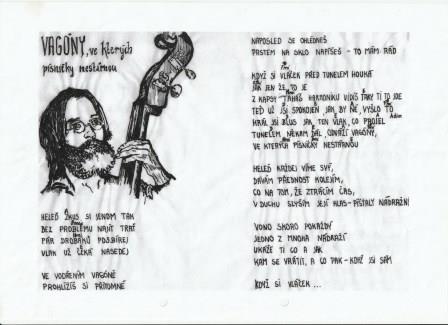 VAGÓNY, ve kterých
písničky nestárnou
HELEĎ ZKUS SI JENOM TAK
BEZ PROBLÉMU NAJÍT TRAŤ
PÁR DROBÁKŮ POSBÍREJ
VLAK UŽ ČEKÁ NASEDEJ
VE VODŘENÝM VAGÓNĚ
PROHLÍŽÍŠ SI PŘÍTOMNÉ
NAPOSLED SE OHLÉDNEŠ
PRSTEM NA SKLO NAPÍŠEŠ - TO MÁM RÁD
KDYŽ SI VLÁČEK PŘED TUNELEM HOUKÁ
JAK JEN ŽE, TO JE
Z KAPSY TAHÁŠ HARMONIKU VIDÍŠ TAKY TI TO JDE
TEĎ UŽ JSI SPOKOJEN JAK BY NE, VYŠLO TO
HRÁL JSI BLUS JAK TEN VLAK, CO PROJEL
TUNELEM, NĚKAM DÁL ODVÁŽÍ VAGÓNY,
VE KTERÝCH PÍSNIČKY NESTÁRNOU
HELEĎ KAŽDEJ VÍME SVÝ,
DÁVÁM PŘEDNOST KOLEJÍM,
CO NA TOM, ŽE ZTRÁCÍM ČAS,
V DUCHU SLYŠÍM JEJÍ HLAS - PÍŠŤALY NÁDRAŽNÍ
VONO SKORO POKAŽDÝ
JEDNO Z MNOHA NÁDRAŽÍ
UKÁŽE TI CO A JAK
KAM SE VRÁTIT, A CO PAK - KDYŽ JSI SÁM
KDYŽ SI VLÁČEK ...